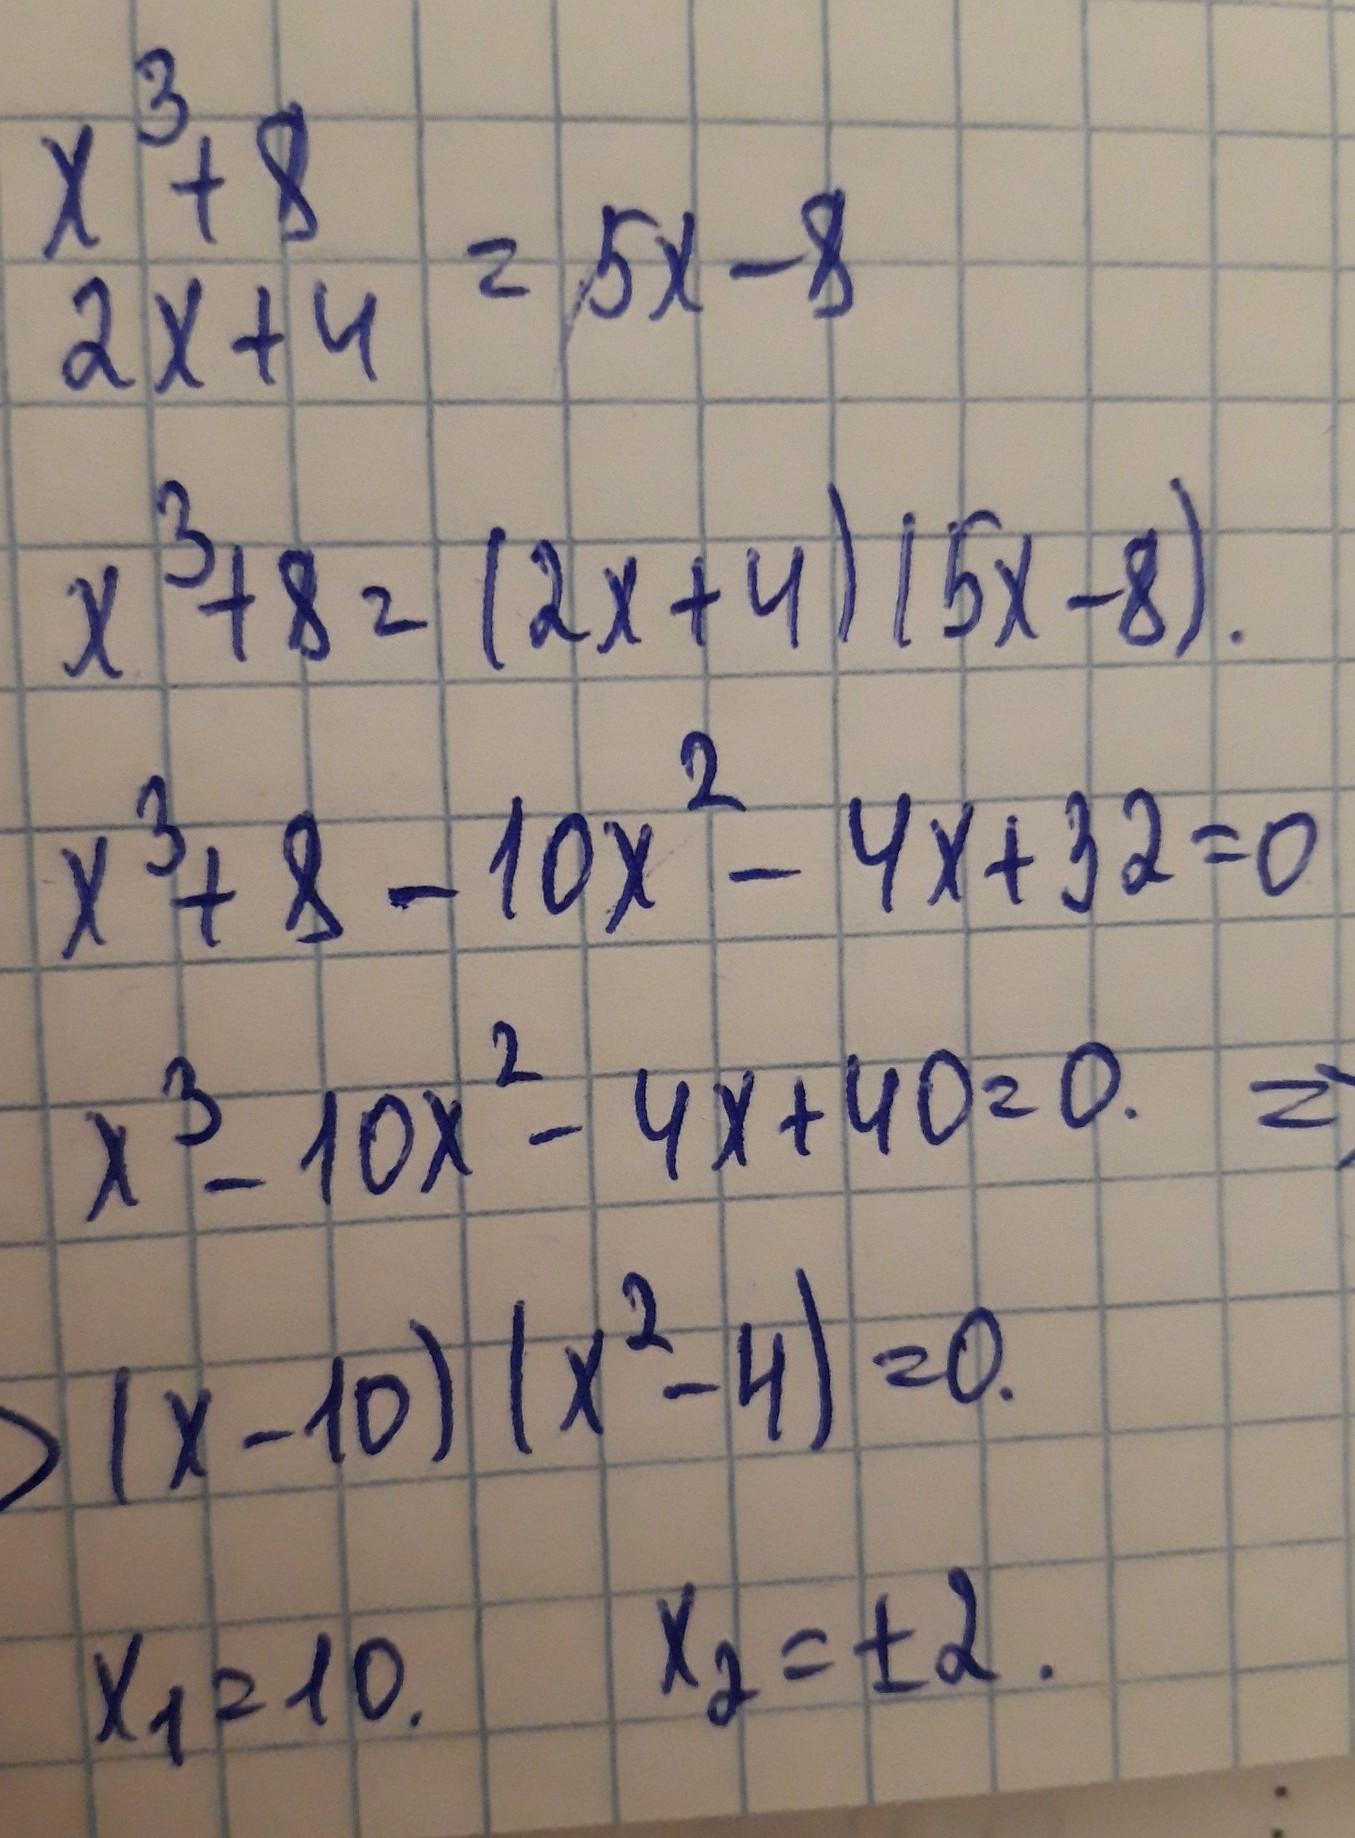 x³+8
= 5x-8
2x+4
x³+8=(2x+4)(5x-8).
x³+8-10x²-4x+32=0
x³-10x²-4x+40=0. =>
>(x-10)(x²-4)=0.
x₁=10. x₂=±2.